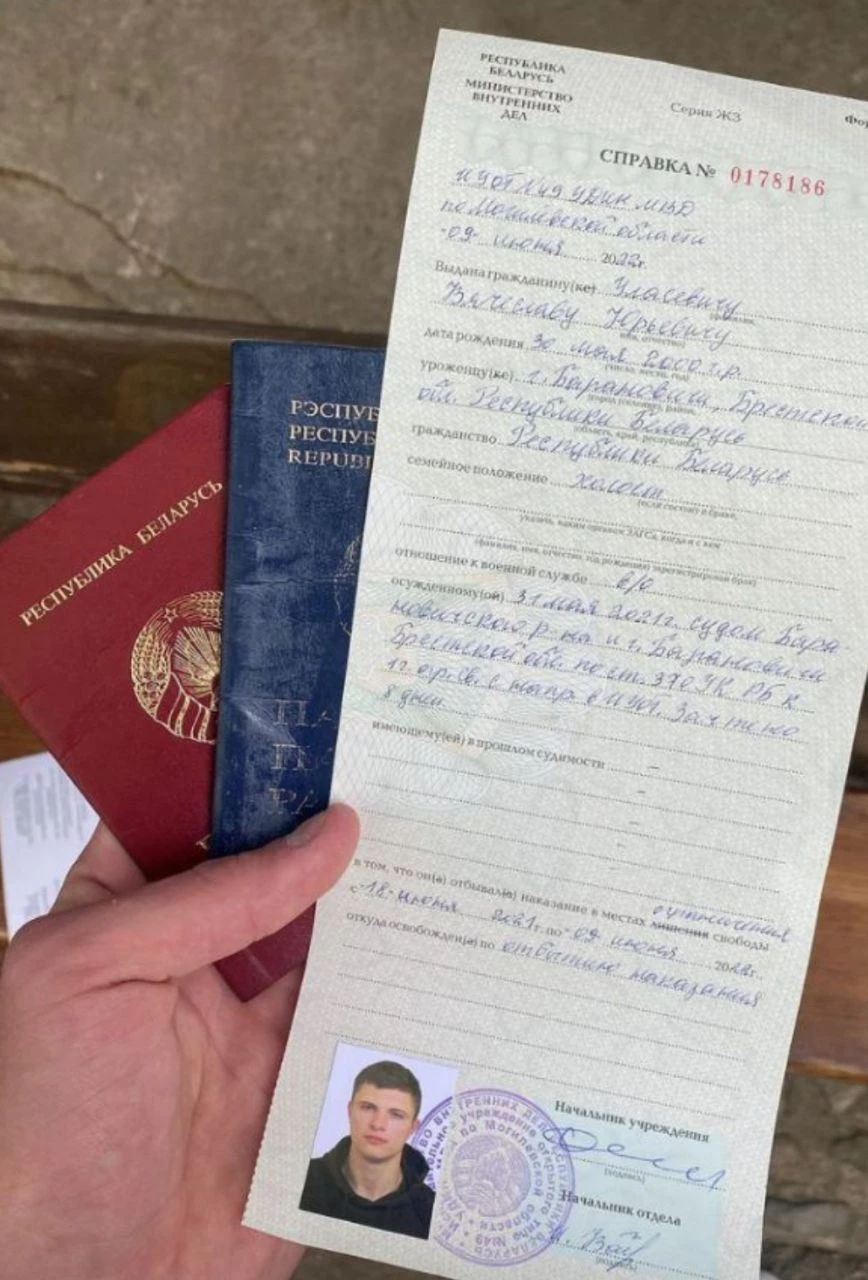 РЕСПУБЛИКА
БЕЛАРУСЬ
МИНИСТЕРСТВО
ВНУТРЕННИХ
ДЕЛ
Серия ЖЗ
СПРАВКА № 0178186
ИУОТ №49 УДИН МВД
по Могилёвской области
"09" июня 2022г.
Выдана гражданину(ке) Уласевичу
Вячеславу Юрьевичу
дата рождения 30 мая 2000 г.р.
уроженцу(ке) г. Барановичи, Брестской
обл. Республики Беларусь
гражданство Республики Беларусь
семейное положение холост
(если состоит в браке,
указать, каким органом ЗАГСа, когда и с кем
(фамилия, имя, отчество, год рождения) зарегистрирован брак)
отношение к военной службе в/о
осужденному(ой) 31 мая 2021г. судом Бара
новичского р-на и г. Барановичи
Брестской обл. по ст. 370 УК РБ к
1г. огр. св. с напр. в ИУОТ. Зачтено
8 дней
имеющему(ей) в прошлом судимости –
–
–
–
в том, что он(а) отбывал(а) наказание в местах лишения ограничения свободы
с "18" июня 2021г. по "09" июня 2022г.,
откуда освобожден(а) по отбытию наказания
Начальник учреждения
(подпись)
Начальник отдела
(подпись)
РЕСПУБЛИКА БЕЛАРУСЬ
РЭСПУБ
РЕСПУБ
REPUBI
ПА